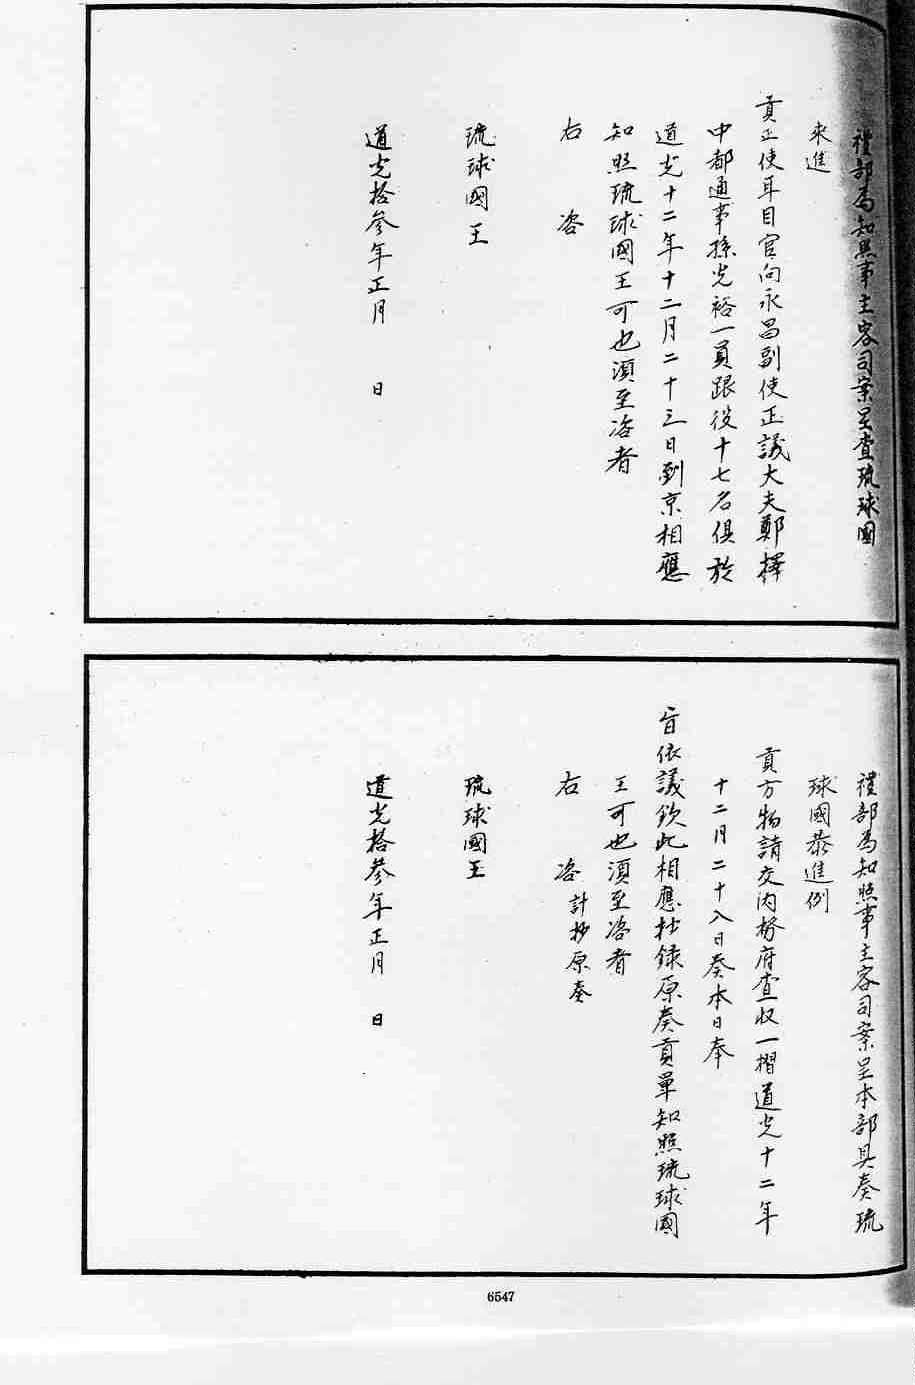 禮部為知照事主客司案呈查琉球國
來進
貢正使耳目官向永昌副使正議大夫鄭擇
中都通事孫光裕一員跟役十七名俱於
道光十二年十二月二十三日到京相應
知照琉球國王可也須至咨者
右咨
琉球國王
道光拾叄年正月 日
禮部為知照事主客司案呈本部具奏琉
球國恭進例
貢方物請交內務府查收一摺道光十二年
十二月二十八日奏本日奉
旨依議欽此相應抄錄原奏貢單知照琉球國
王可也須至咨者
右咨 計抄原奏
琉球國王
道光拾叄年正月 日
6547